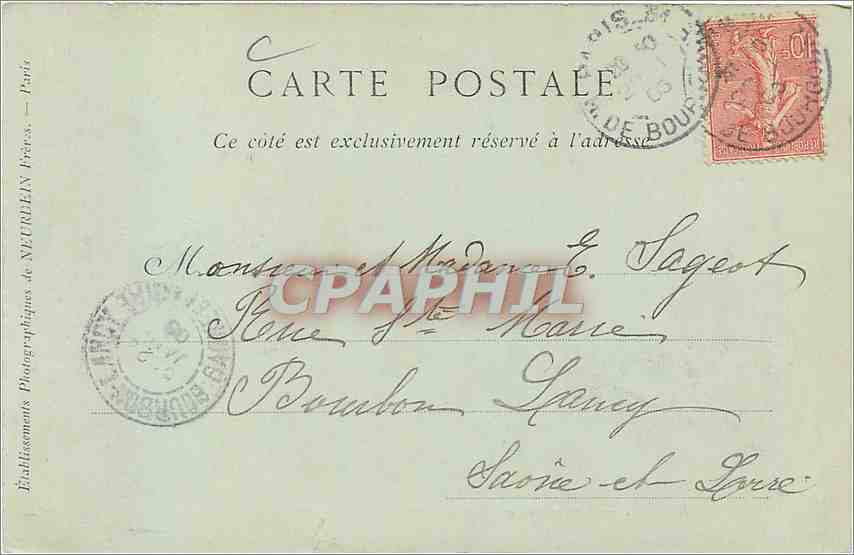 CARTE POSTALE
Ce côté est exclusivement réservé à l'adresse
Monsieur et Madame E. Sageot
Rue Ste Marie
Bourbon Lancy
Saône et Loire
Établissements Photographiques de NEURDEIN Frères. — Paris
CPAPHIL
PARIS
DE BOUR
10c
DE BOURGOGNE
BOURBON-LANCY
ET LOIRE